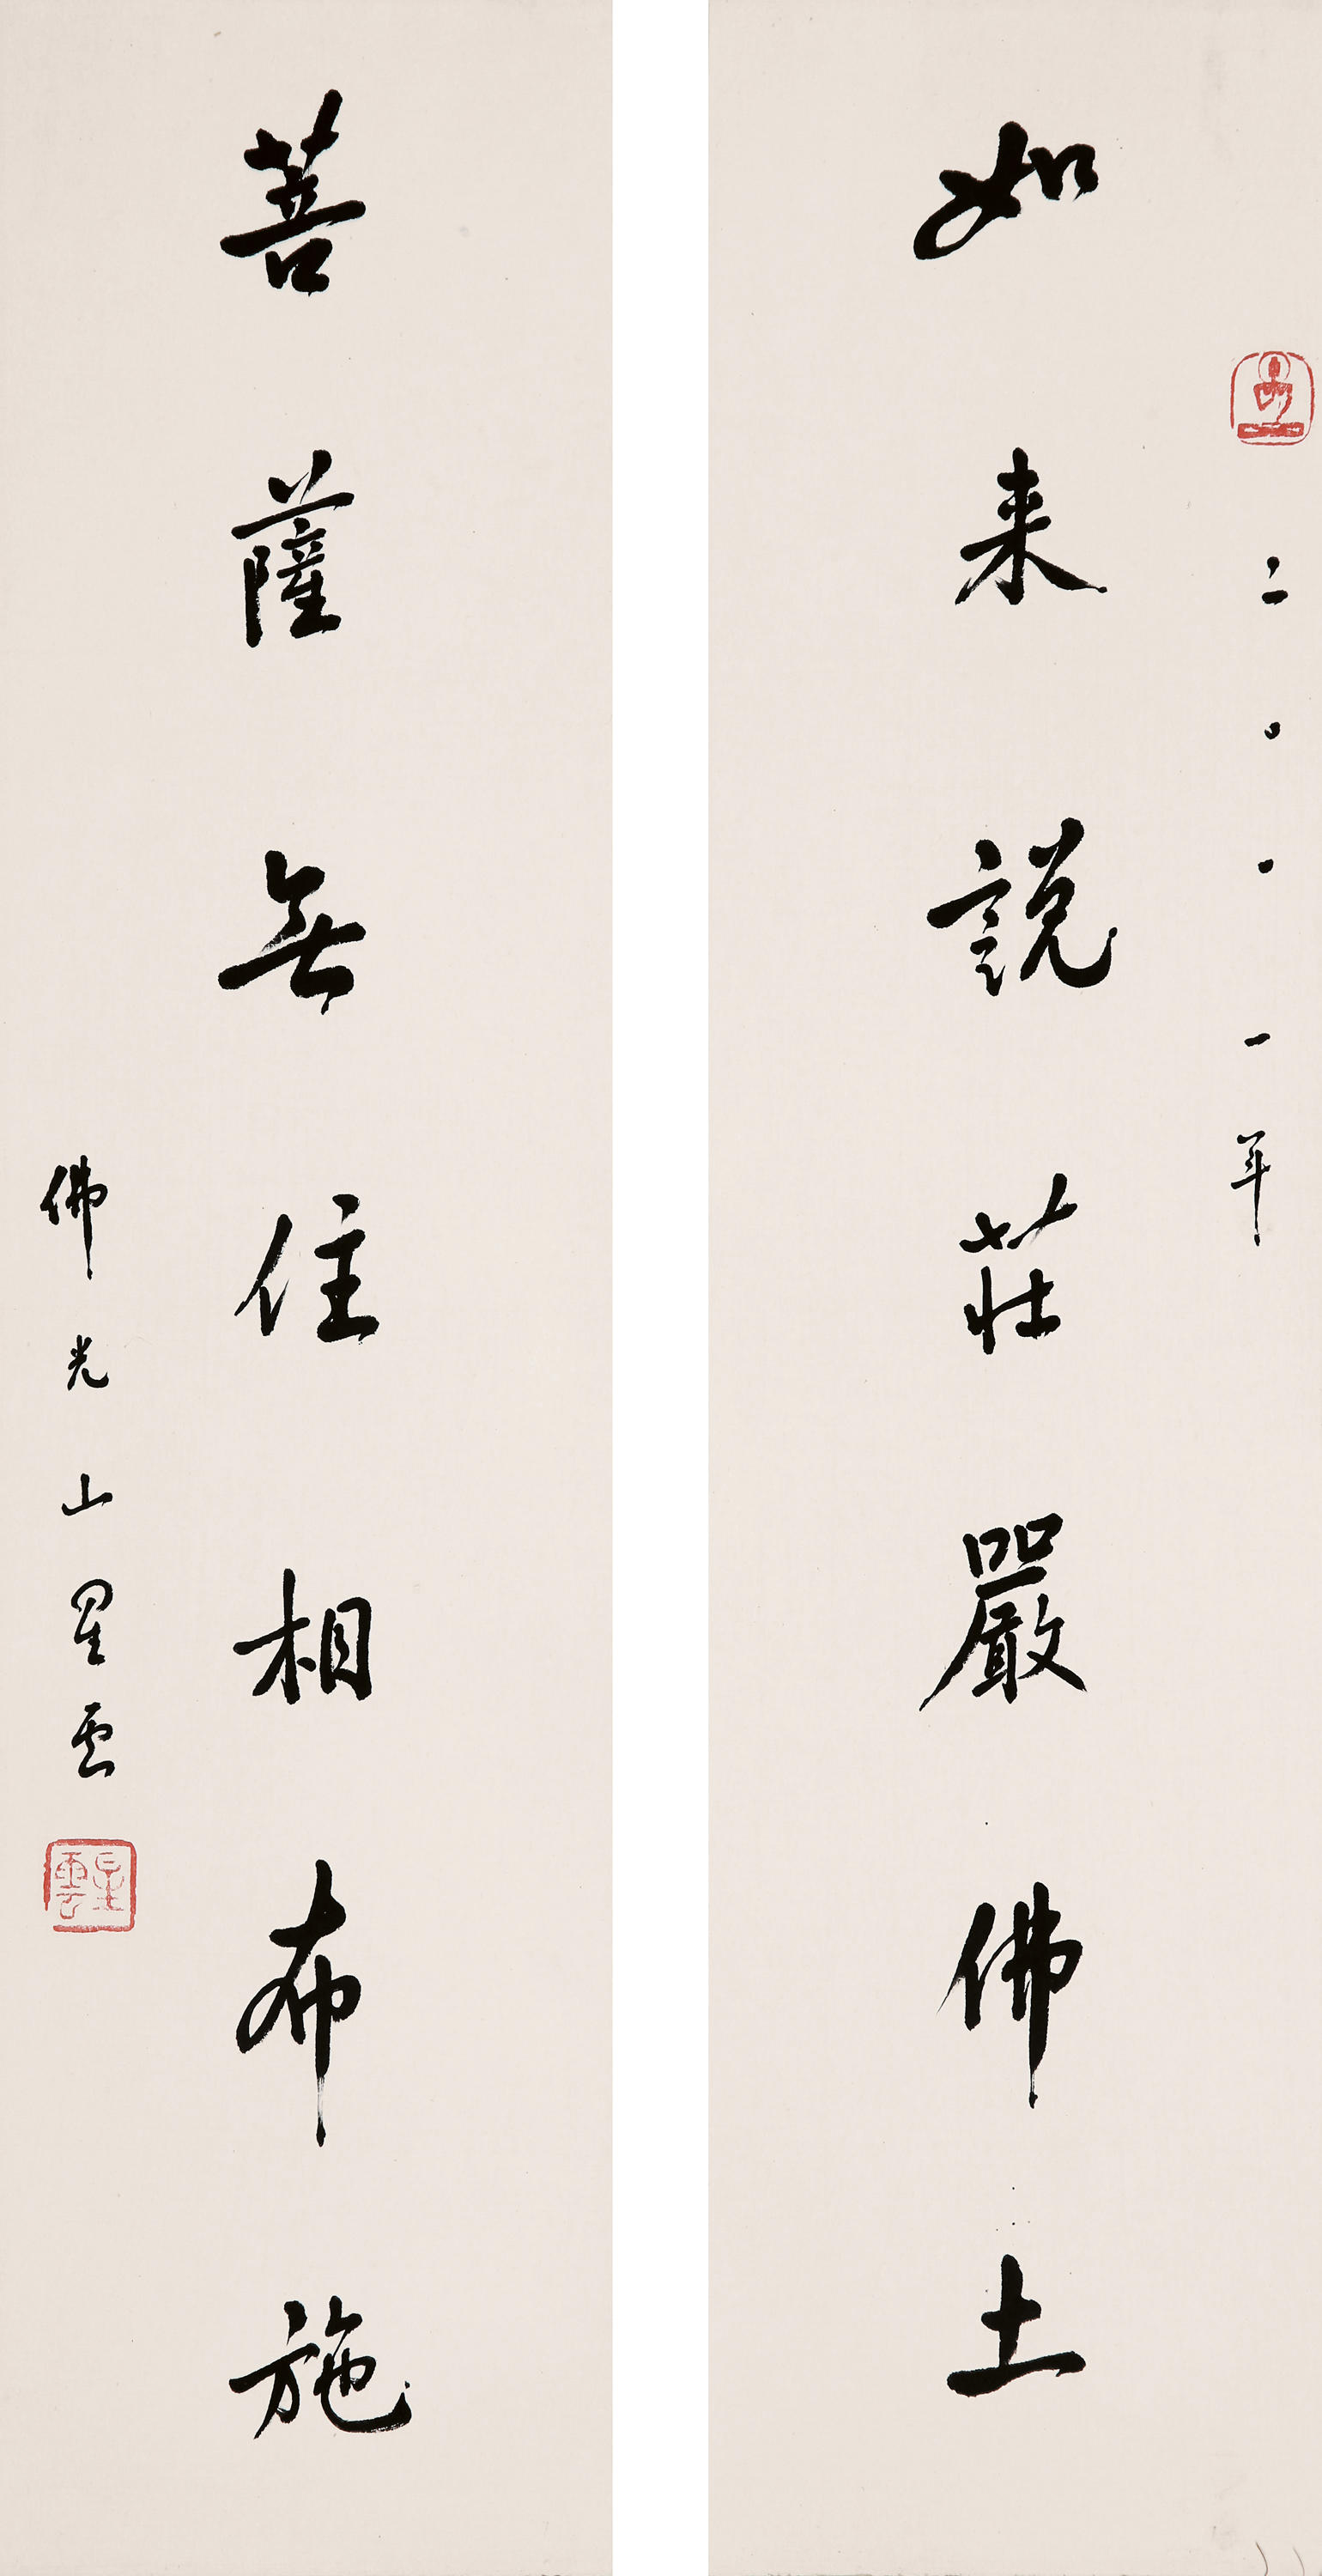 二〇〇一年
如来說莊嚴佛土
菩薩無住相布施
佛光山星雲
星雲